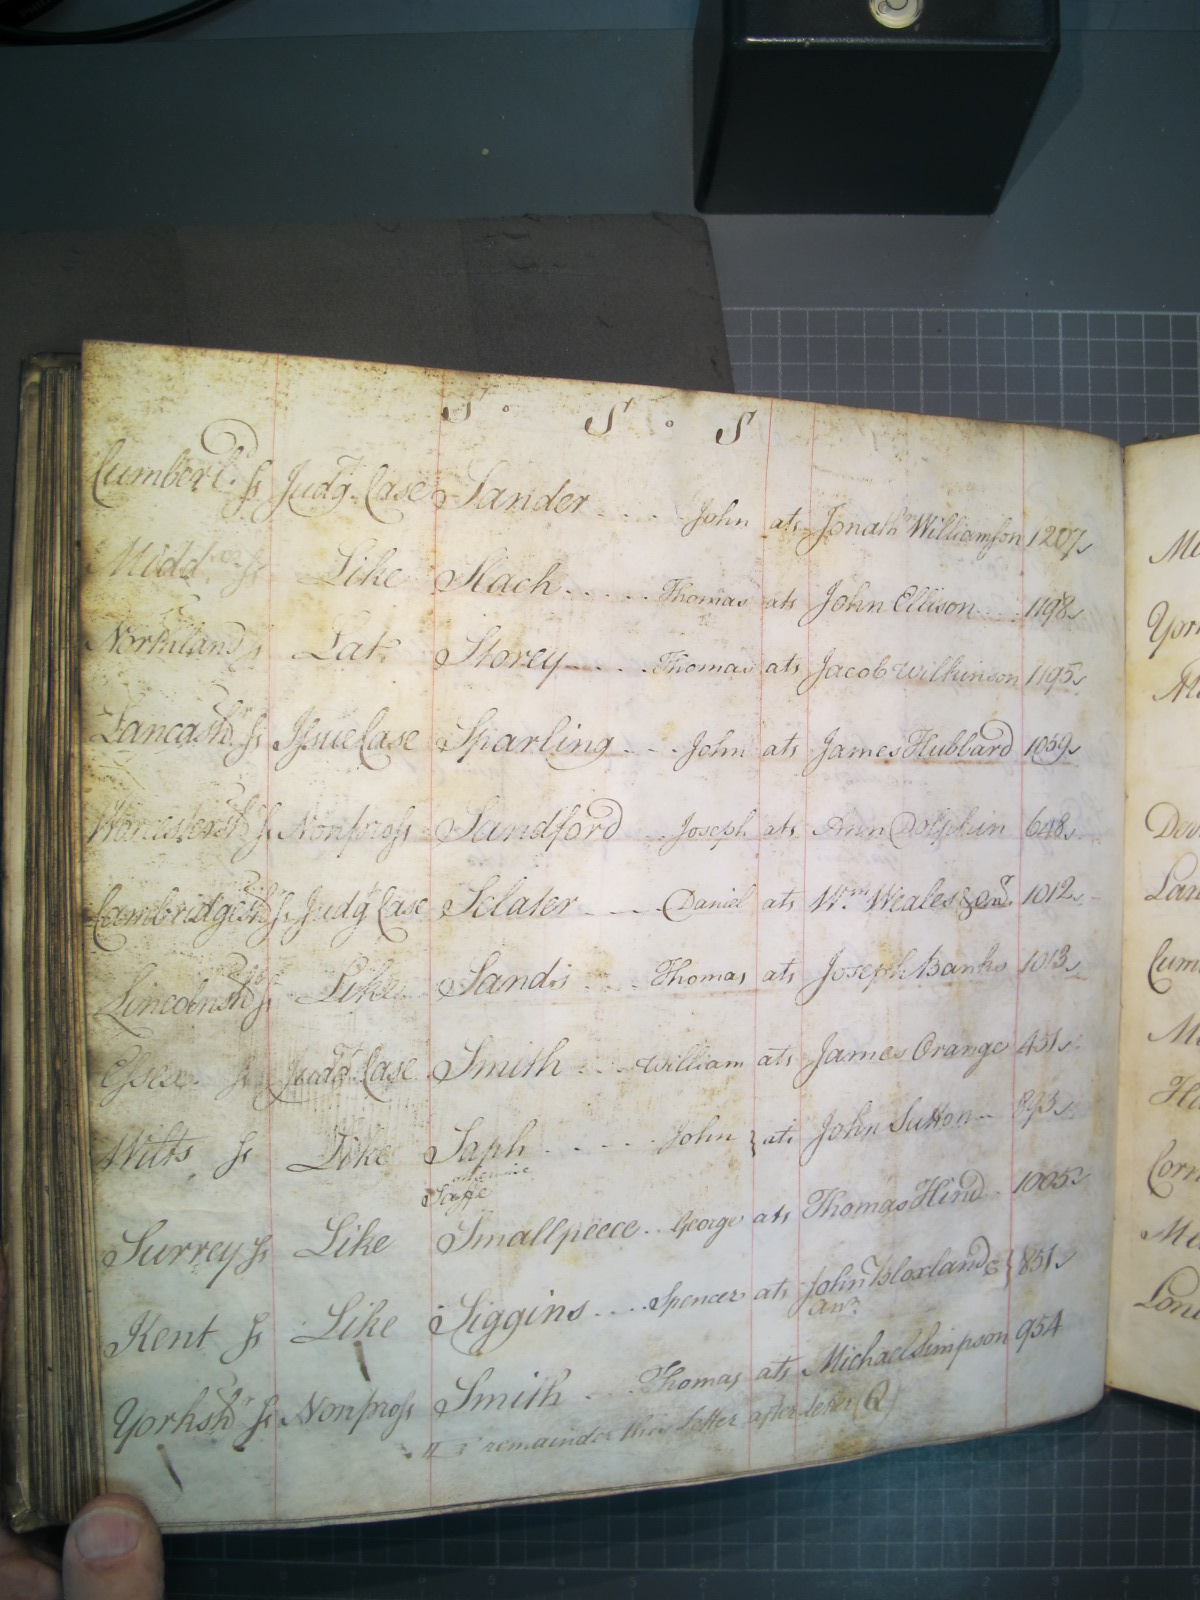 S . S . S
Cumberl.d ss Judgt. Case Sander .... John ats Jonathn Williamson 1207
Middx ss Like Slach ..... Thomas ats John Ellison 1198
Northland ss Lat. Storey .... Thomas ats Jacob Wilkinson 1195
Lancashr. ss Issue Case Sparling ... John ats James Hubbard 1059
Worcestersh ss Nonpross Sandford .. Joseph ats Ann Dolphin 648
Cambridgesh ss Judgt Case Sclater .... Daniel ats Wm. Weales & anr. 1012
Lincolnsh ss Like Sandis .... Thomas ats Joseph Banks 1013
Essex ss Judgt. Case Smith .... William ats James Orange 431
Wilts ss Like Saph ..... John } ats John Sutton 893
otherwise
Saffe
Surrey ss Like Smallpeece .. George ats Thomas Hind 1005
Kent ss Like Siggins .... Spencer ats John Bloxland & } 851
anr.
Yorksh ss Nonpross Smith ... Thomas ats Michael Simpson 954
remainder this Letter after letter (Q)
Mi
York
Dev
Lan
Cum
M
Ha
Corn
Mi
Lond